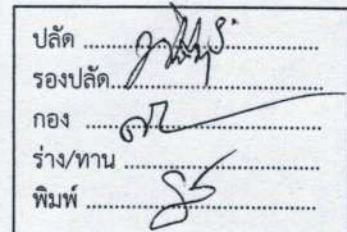 ปลัด ........................
รองปลัด........................
กอง ........................
ร่าง/ทาน ........................
พิมพ์ ........................